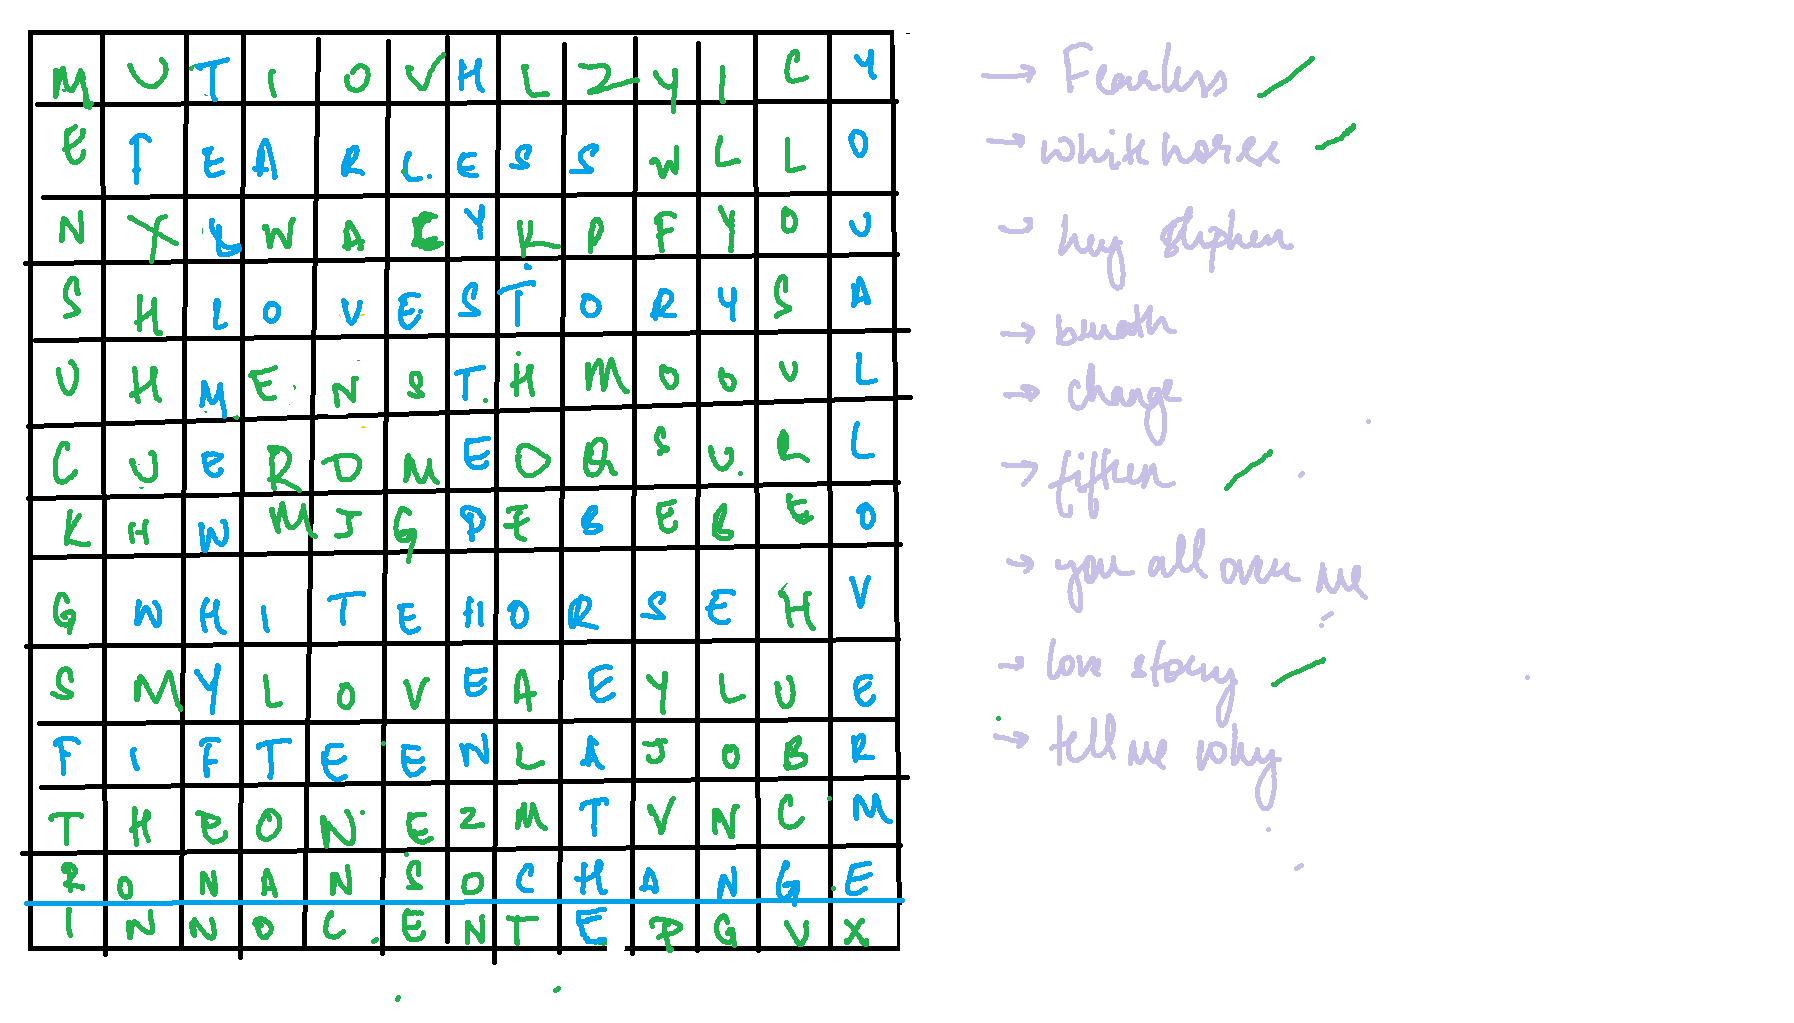 M U T I O V H L Z Y I C Y
E F E A R L E S S W L L O
N Y L W A C Y K P F Y O U
S H L O V E S T O R Y S A
U H M E N S T H M O O U L
C U E R D M E O Q S U R L
K H W M J G P E B E B E O
G W H I T E H O R S E H V
S M Y L O V E A E Y L U E
F I F T E E N L A J O B R
T H E O N E Z M T V N C M
R O N A N S O C H A N G E
I N N O C E N T E P G U X
→ Fearless
→ white horse
→ hey stephen
→ breath
→ change
→ fifteen
→ you all over me
→ love story
→ tell me why